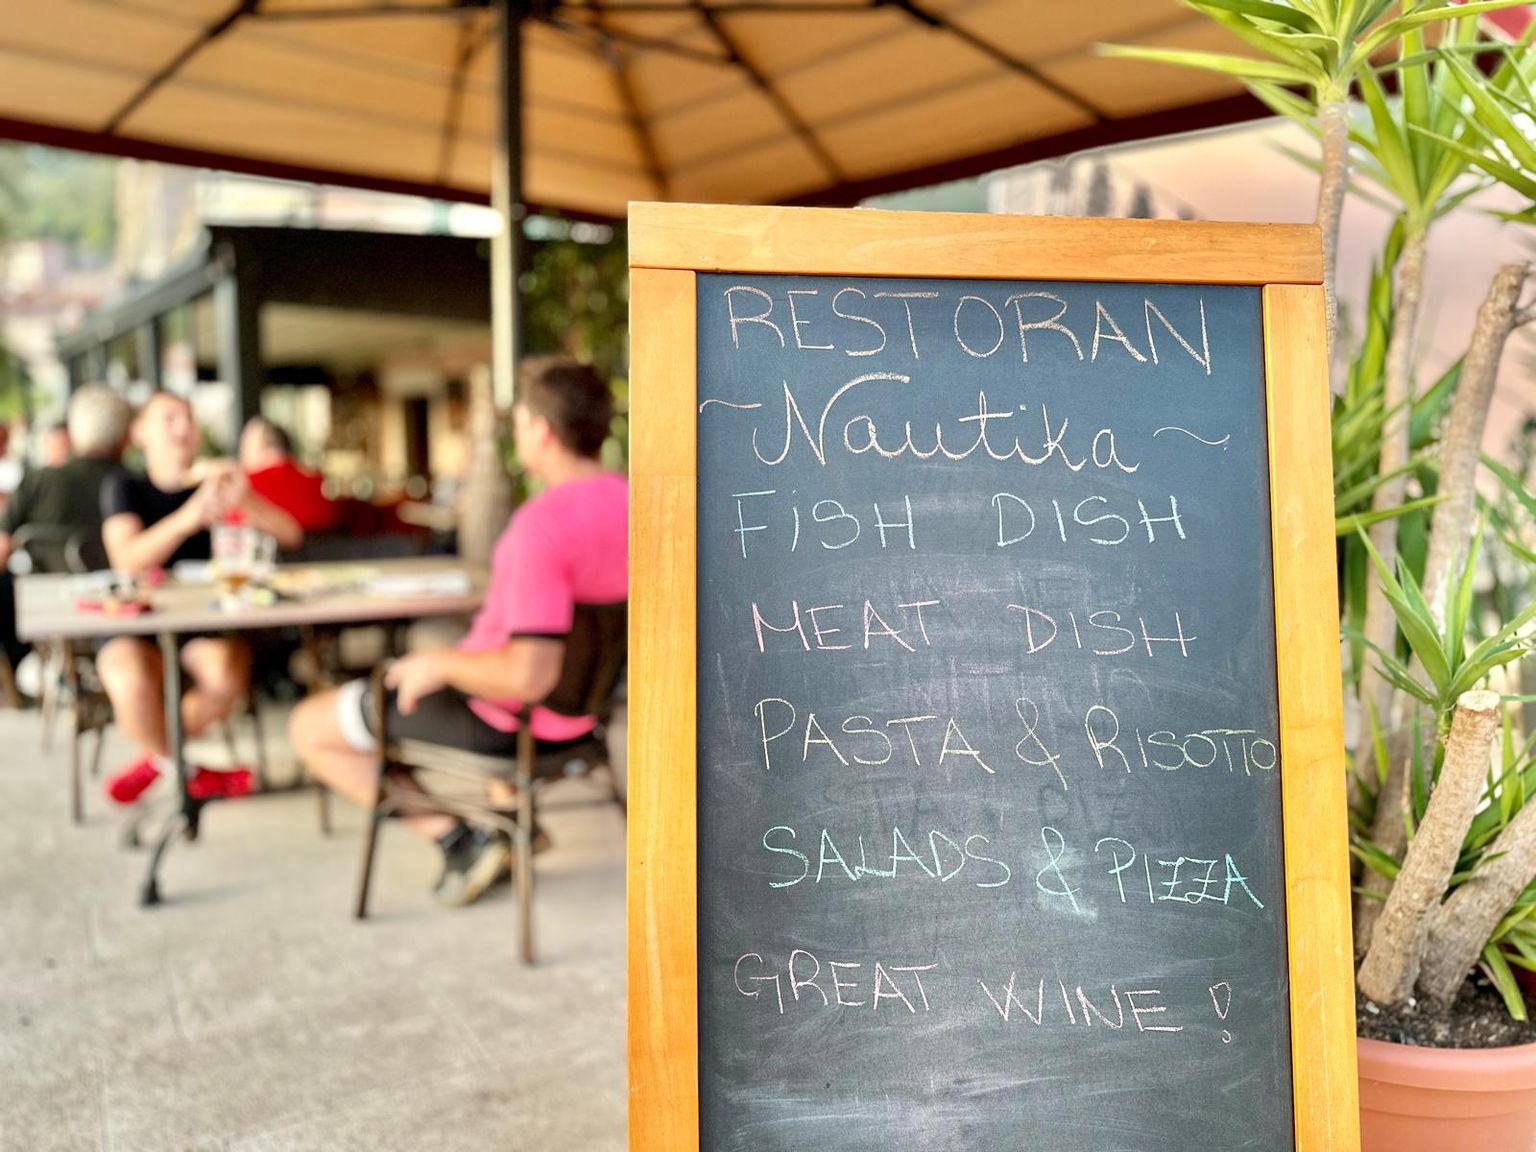 RESTORAN
~ Nautika ~
FiSH DISH
MEAT DISH
PASTA & RISOTTO
SALADS & PIZZA
GREAT WINE !